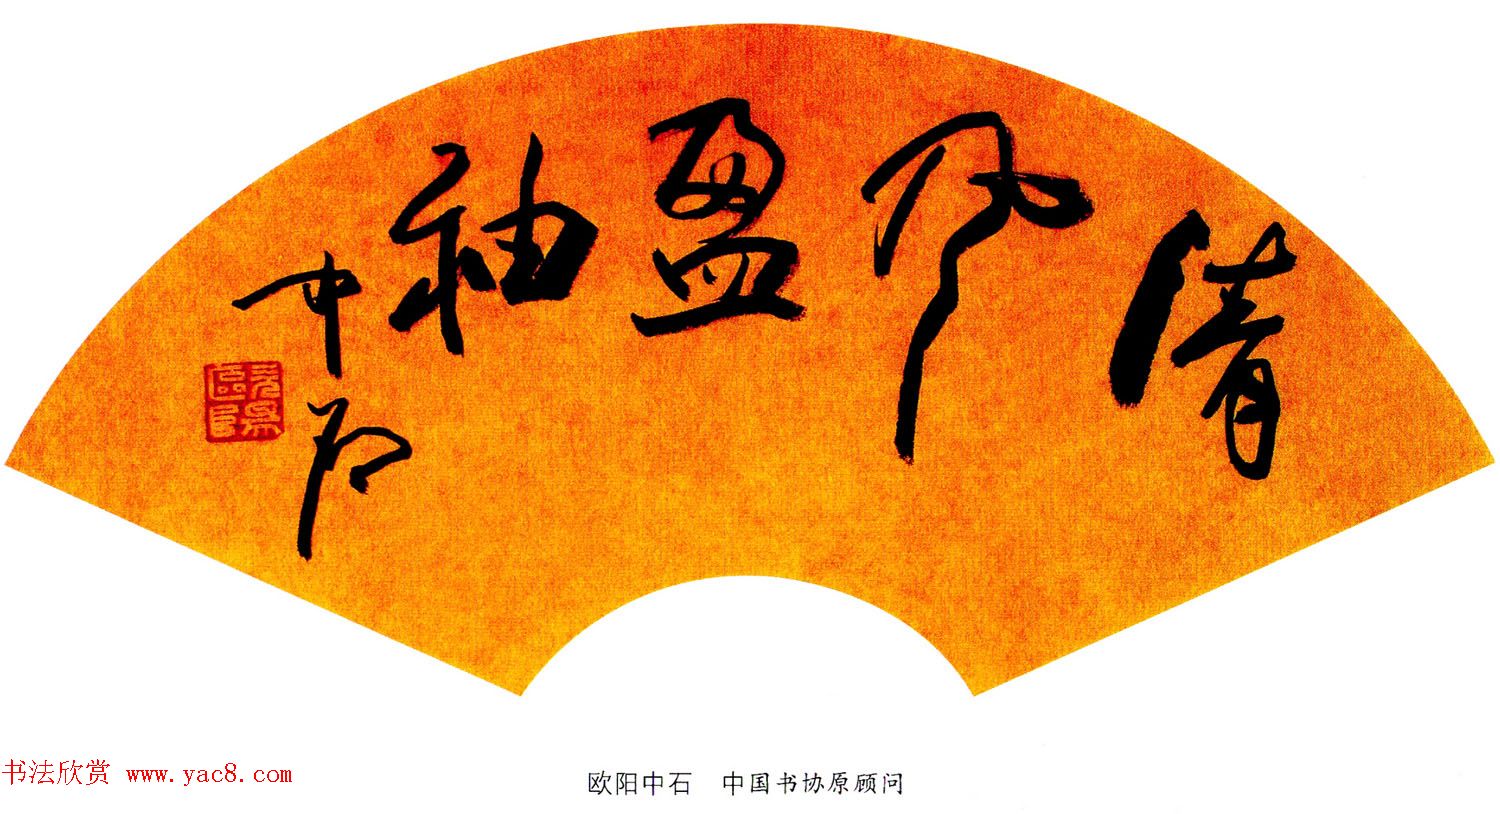 清风盈袖
中石
欧阳
书法欣赏 www.yac8.com
欧阳中石 中国书协原顾问